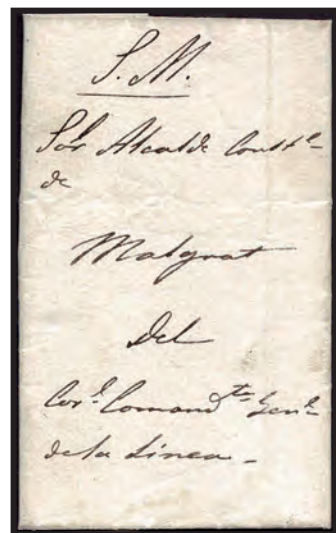 S. M.
Sôr Alcalde Constl.
de
Malgrat
Del
Corl. Comandte. Genl.
de la Linea.